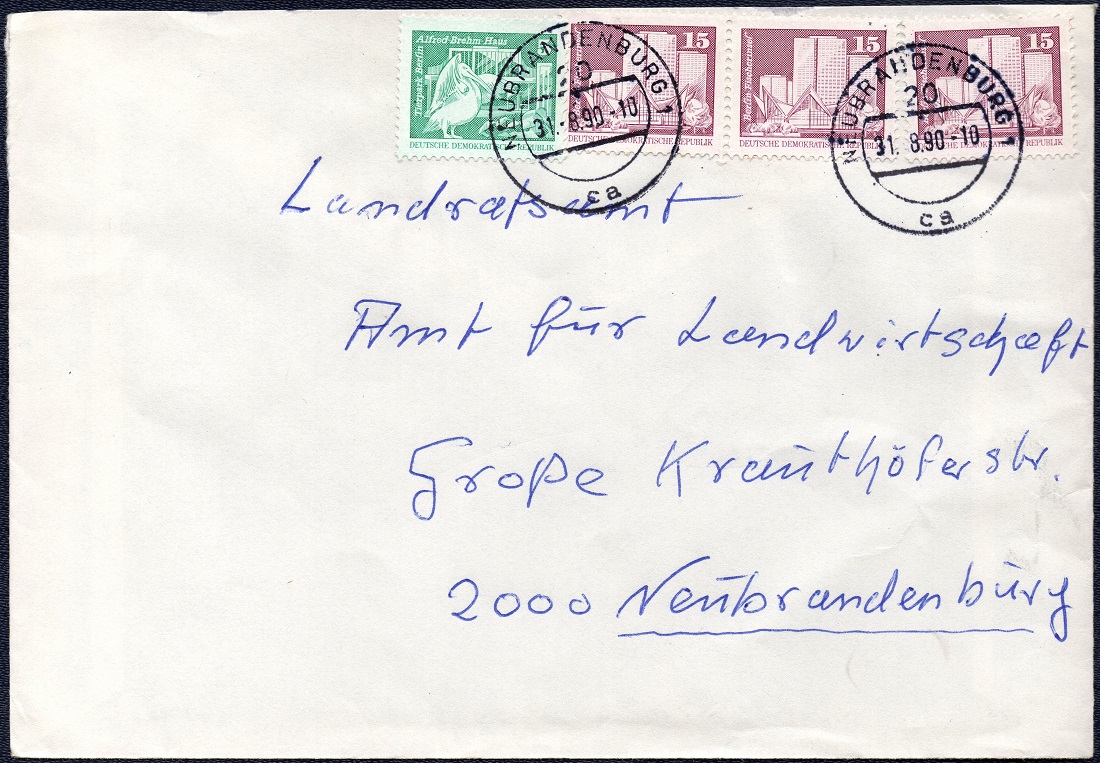 Tierpark Berlin
Alfred-Brehm-Haus
DEUTSCHE DEMOKRATISCHE REPUBLIK
15
DEUTSCHE DEMOKRATISCHE REPUBLIK
Berlin Fischerinsel
15
DEUTSCHE DEMOKRATISCHE REPUBLIK
15
DEUTSCHE DEMOKRATISCHE REPUBLIK
NEUBRANDENBURG 1
20
31.-8.90-10
ca
NEUBRANDENBURG 1
20
31. 8.90-10
ca
Landratsamt
Amt für Landwirtschaft
Große Krauthöferstr.
2000 Neubrandenburg